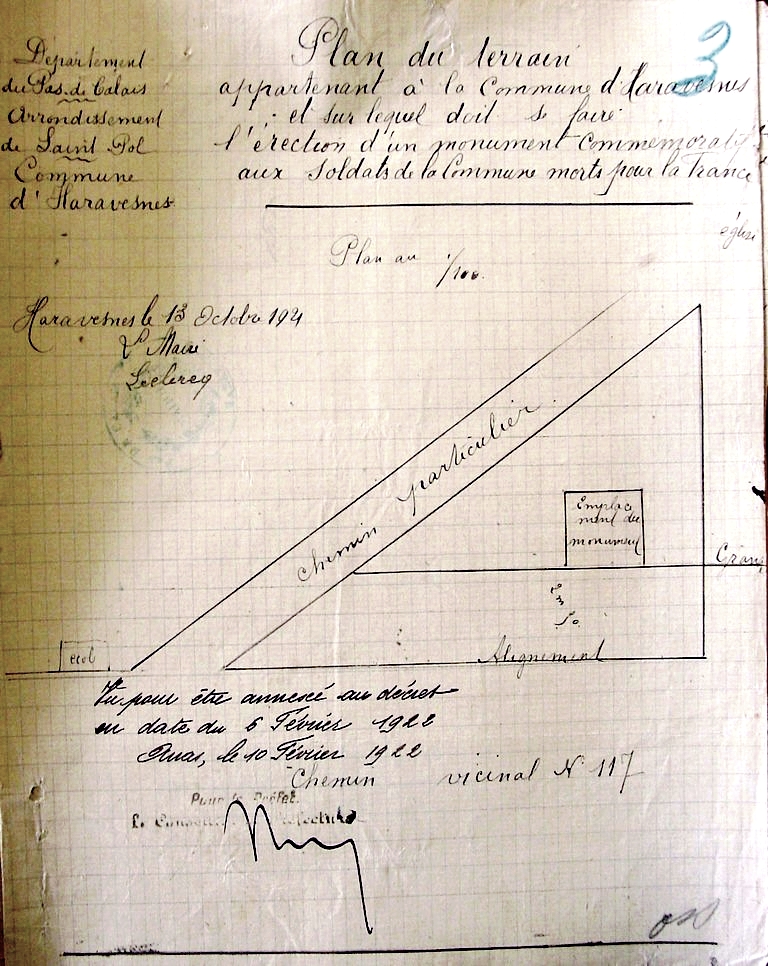 3
Département
du Pas. de Calais
Arrondissement
de Saint Pol
Commune
d'Haravesnes
Plan du terrain
appartenant à la Commune d'Haravesnes
et sur lequel doit se faire
l'érection d'un monument commémoratif
aux soldats de la Commune morts pour la France
église
Plan au 1/100.
Haravesnes le 13 Octobre 1921
Le Maire
Leclercq
chemin particulier
Emplac
ment du
monument
Grang
Alignement
ecol
Vu pour être annexé au décret
en date du 6 Février 1922
Arras, le 10 Février 1922
Chemin vicinal N° 117
Pour le Préfet.